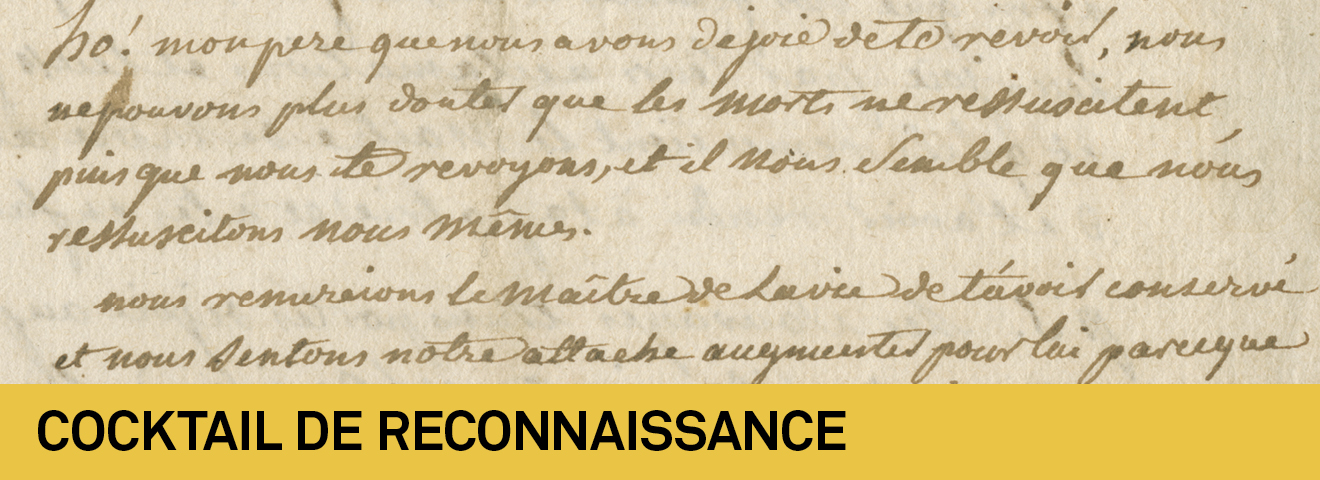 ho! mon pere que nous avons de joie de te revoir, nous
ne pouvons plus douter que les morts ne ressuscitent,
puisque nous te revoyons, et il nous semble que nous
ressuscitons nous mêmes.
nous remercions le maître de la vie de t'avoir conservé
et nous sentons notre attache augmenter pour lui parceque
COCKTAIL DE RECONNAISSANCE